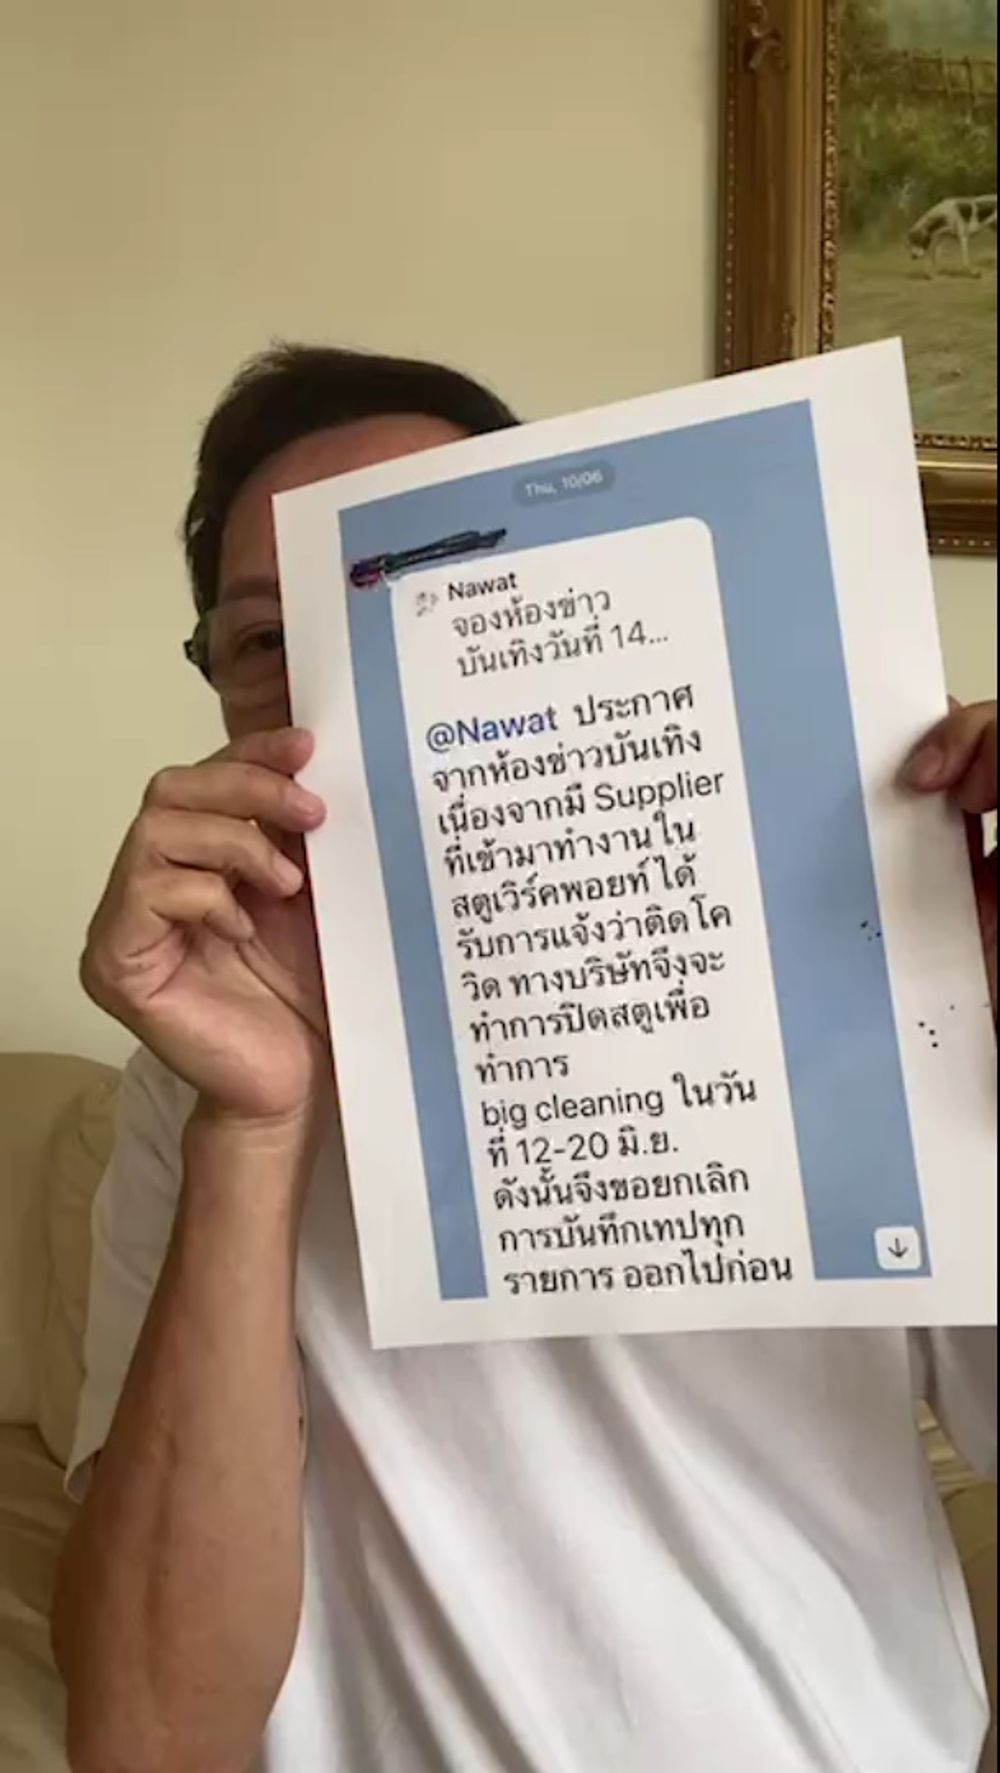 Thu, 10/06
Nawat
จองห้องข่าว
บันเทิงวันที่ 14...
@Nawat ประกาศ
จากห้องข่าวบันเทิง
เนื่องจากมี Supplier
ที่เข้ามาทำงานใน
สตูเวิร์คพอยท์ ได้
รับการแจ้งว่าติดโค
วิด ทางบริษัทจึงจะ
ทำการปิดสตูเพื่อ
ทำการ
big cleaning ในวัน
ที่ 12-20 มิ.ย.
ดังนั้นจึงขอยกเลิก
การบันทึกเทปทุก
รายการ ออกไปก่อน